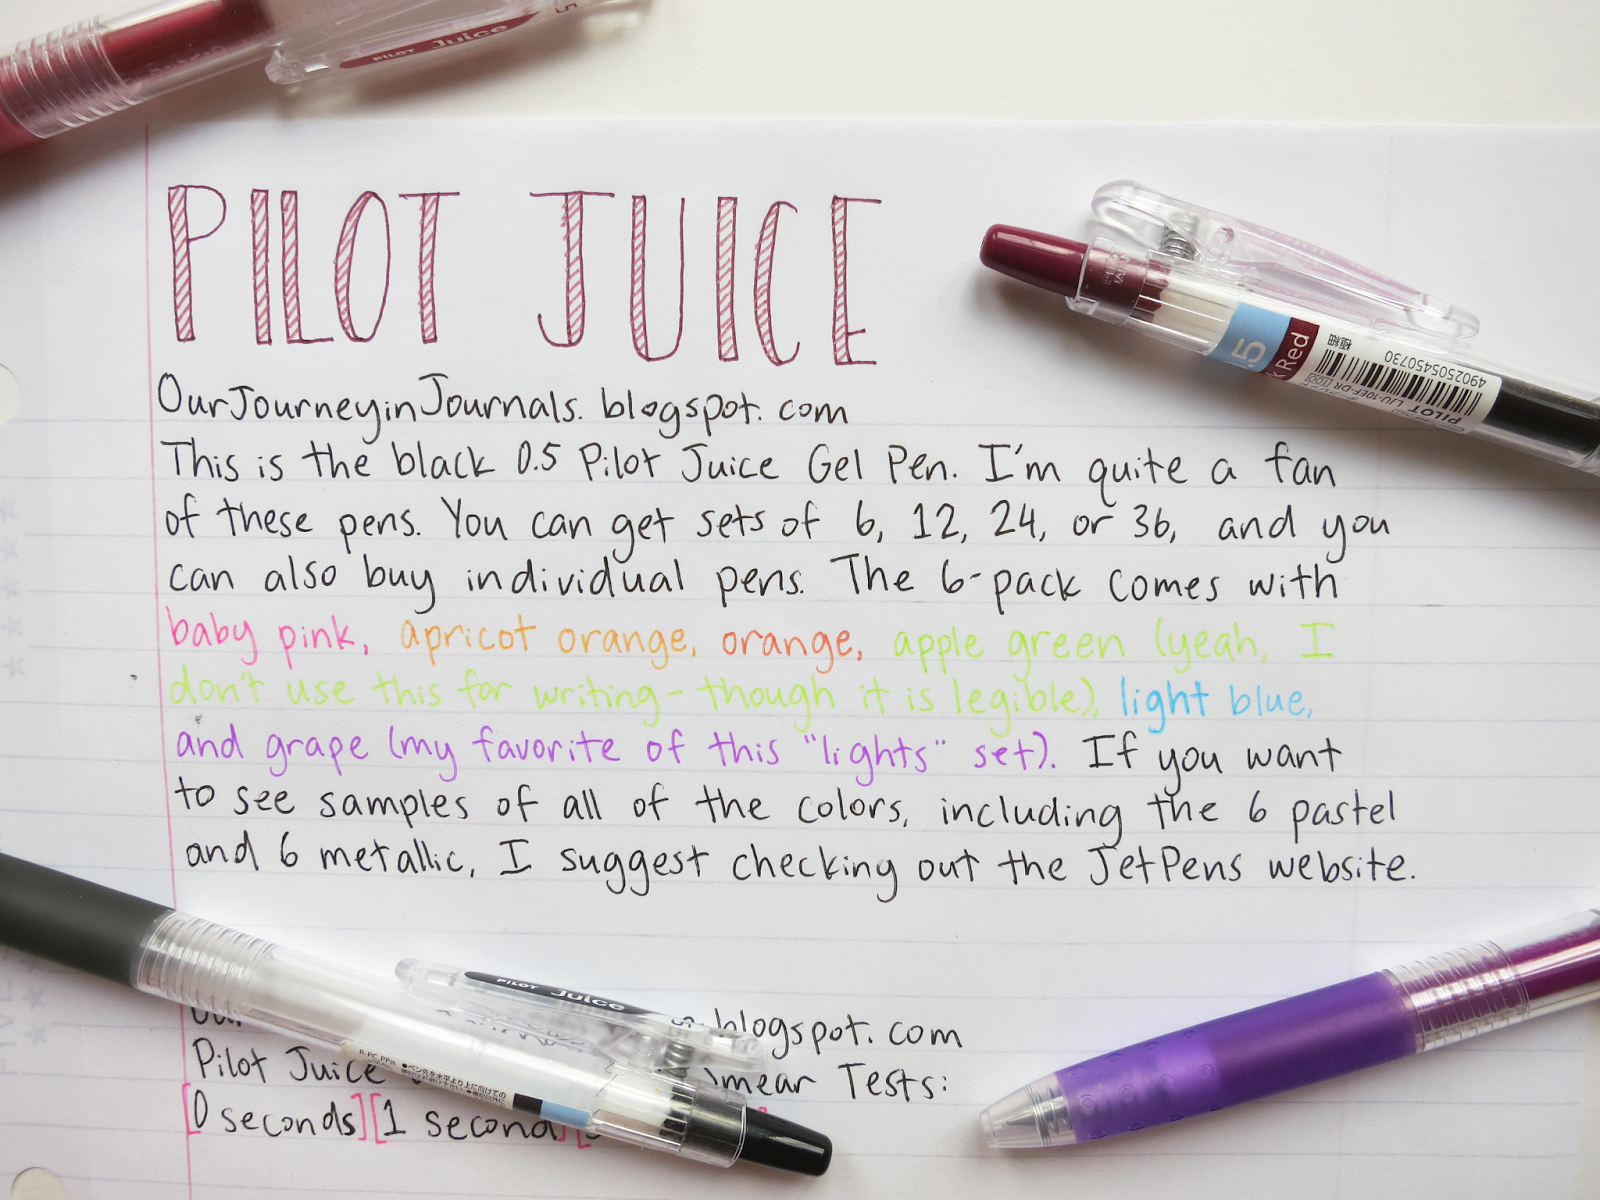 PILOT Juice
PILOT JUICE
.5
k Red
極細
4902505450730
LJU-10EF-DR
100
PILOT
OurJourneyinJournals.blogspot.com
This is the black 0.5 Pilot Juice Gel Pen. I'm quite a fan
of these pens. You can get sets of 6, 12, 24, or 36, and you
can also buy individual pens. The 6-pack comes with
baby pink, apricot orange, orange, apple green (yeah, I
don't use this for writing - though it is legible), light blue,
and grape (my favorite of this "lights" set). If you want
to see samples of all of the colors, including the 6 pastel
and 6 metallic, I suggest checking out the JetPens website.
PILOT Juice
.blogspot.com
Pilot Juice
Smear Tests:
[0 seconds][1 second][